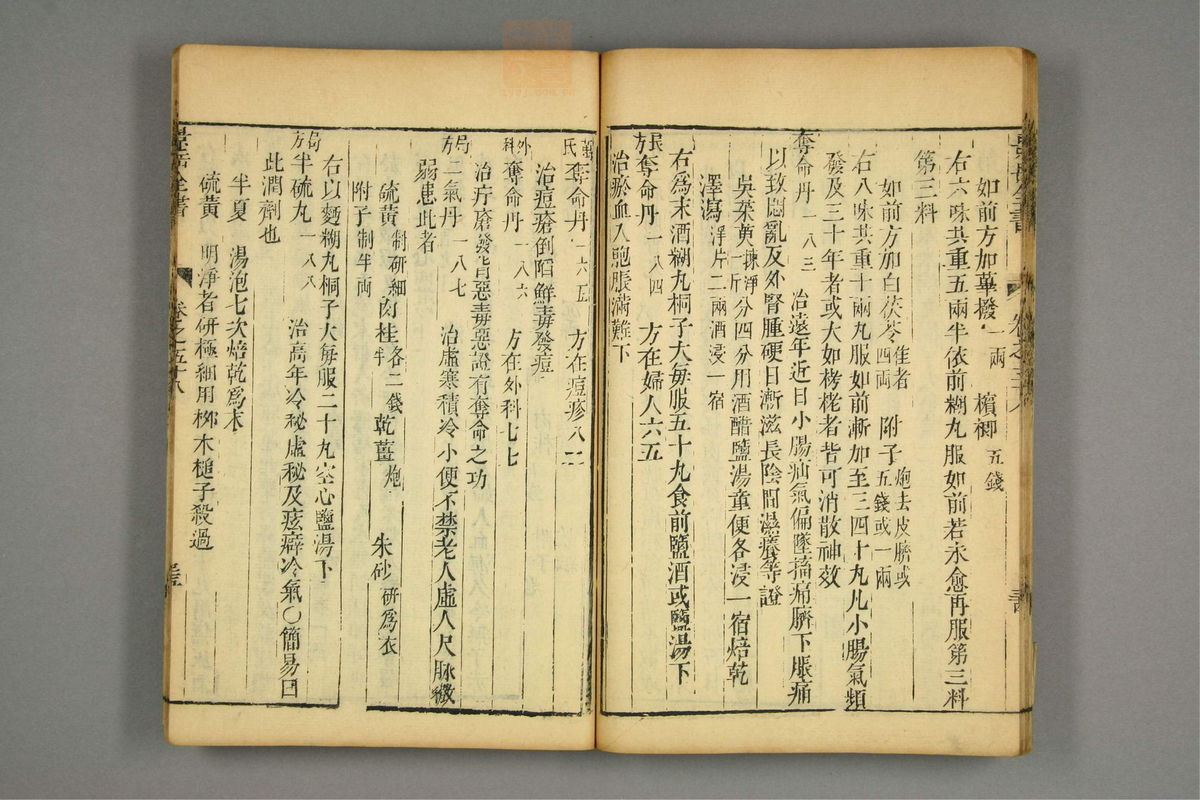 如前方加蓽撥一兩 檳榔五錢
右六味共重五兩半依前糊丸服如前若未愈再服第三料
第三料
如前方加白茯苓佳者四兩 附子炮去皮臍或五錢或一兩
右八味共重十兩丸服如前漸加至三四十丸凡小腸氣頻
發及三十年者或大如栲栳者皆可消散神效
奪命丹一八三 治遠年近日小腸疝氣偏墜搐痛臍下脹痛
以致悶亂及外腎腫硬日漸滋長陰間濕癢等證
吳茱萸揀淨一斤分四分用酒醋鹽湯童便各浸一宿焙乾
澤瀉淨片二兩酒浸一宿
右為末酒糊丸桐子大每服五十丸食前鹽酒或鹽湯下
良方奪命丹一八四 方在婦人六五
治瘀血入胞脹滿難下
氏奪命丹一八五 方在痘疹八二
治痘瘡倒陷鮮毒發痘
外科奪命丹一八六 方在外科七七
治疔瘡發背惡毒惡證有奪命之功
局方二氣丹一八七 治虛寒積冷小便不禁老人虛人尺脉微
弱患此者
硫黃制研細 肉桂各二錢半 乾薑炮 朱砂研為衣
附子制半兩
右以麵糊丸桐子大每服二十丸空心鹽湯下
局方半硫丸一八八 治高年冷秘虛秘及痃癖冷氣○簡易曰
此潤劑也
半夏 湯泡七次焙乾爲末
硫黃 明淨者研極細用柳木槌子殺過
景岳全書 卷之五十八